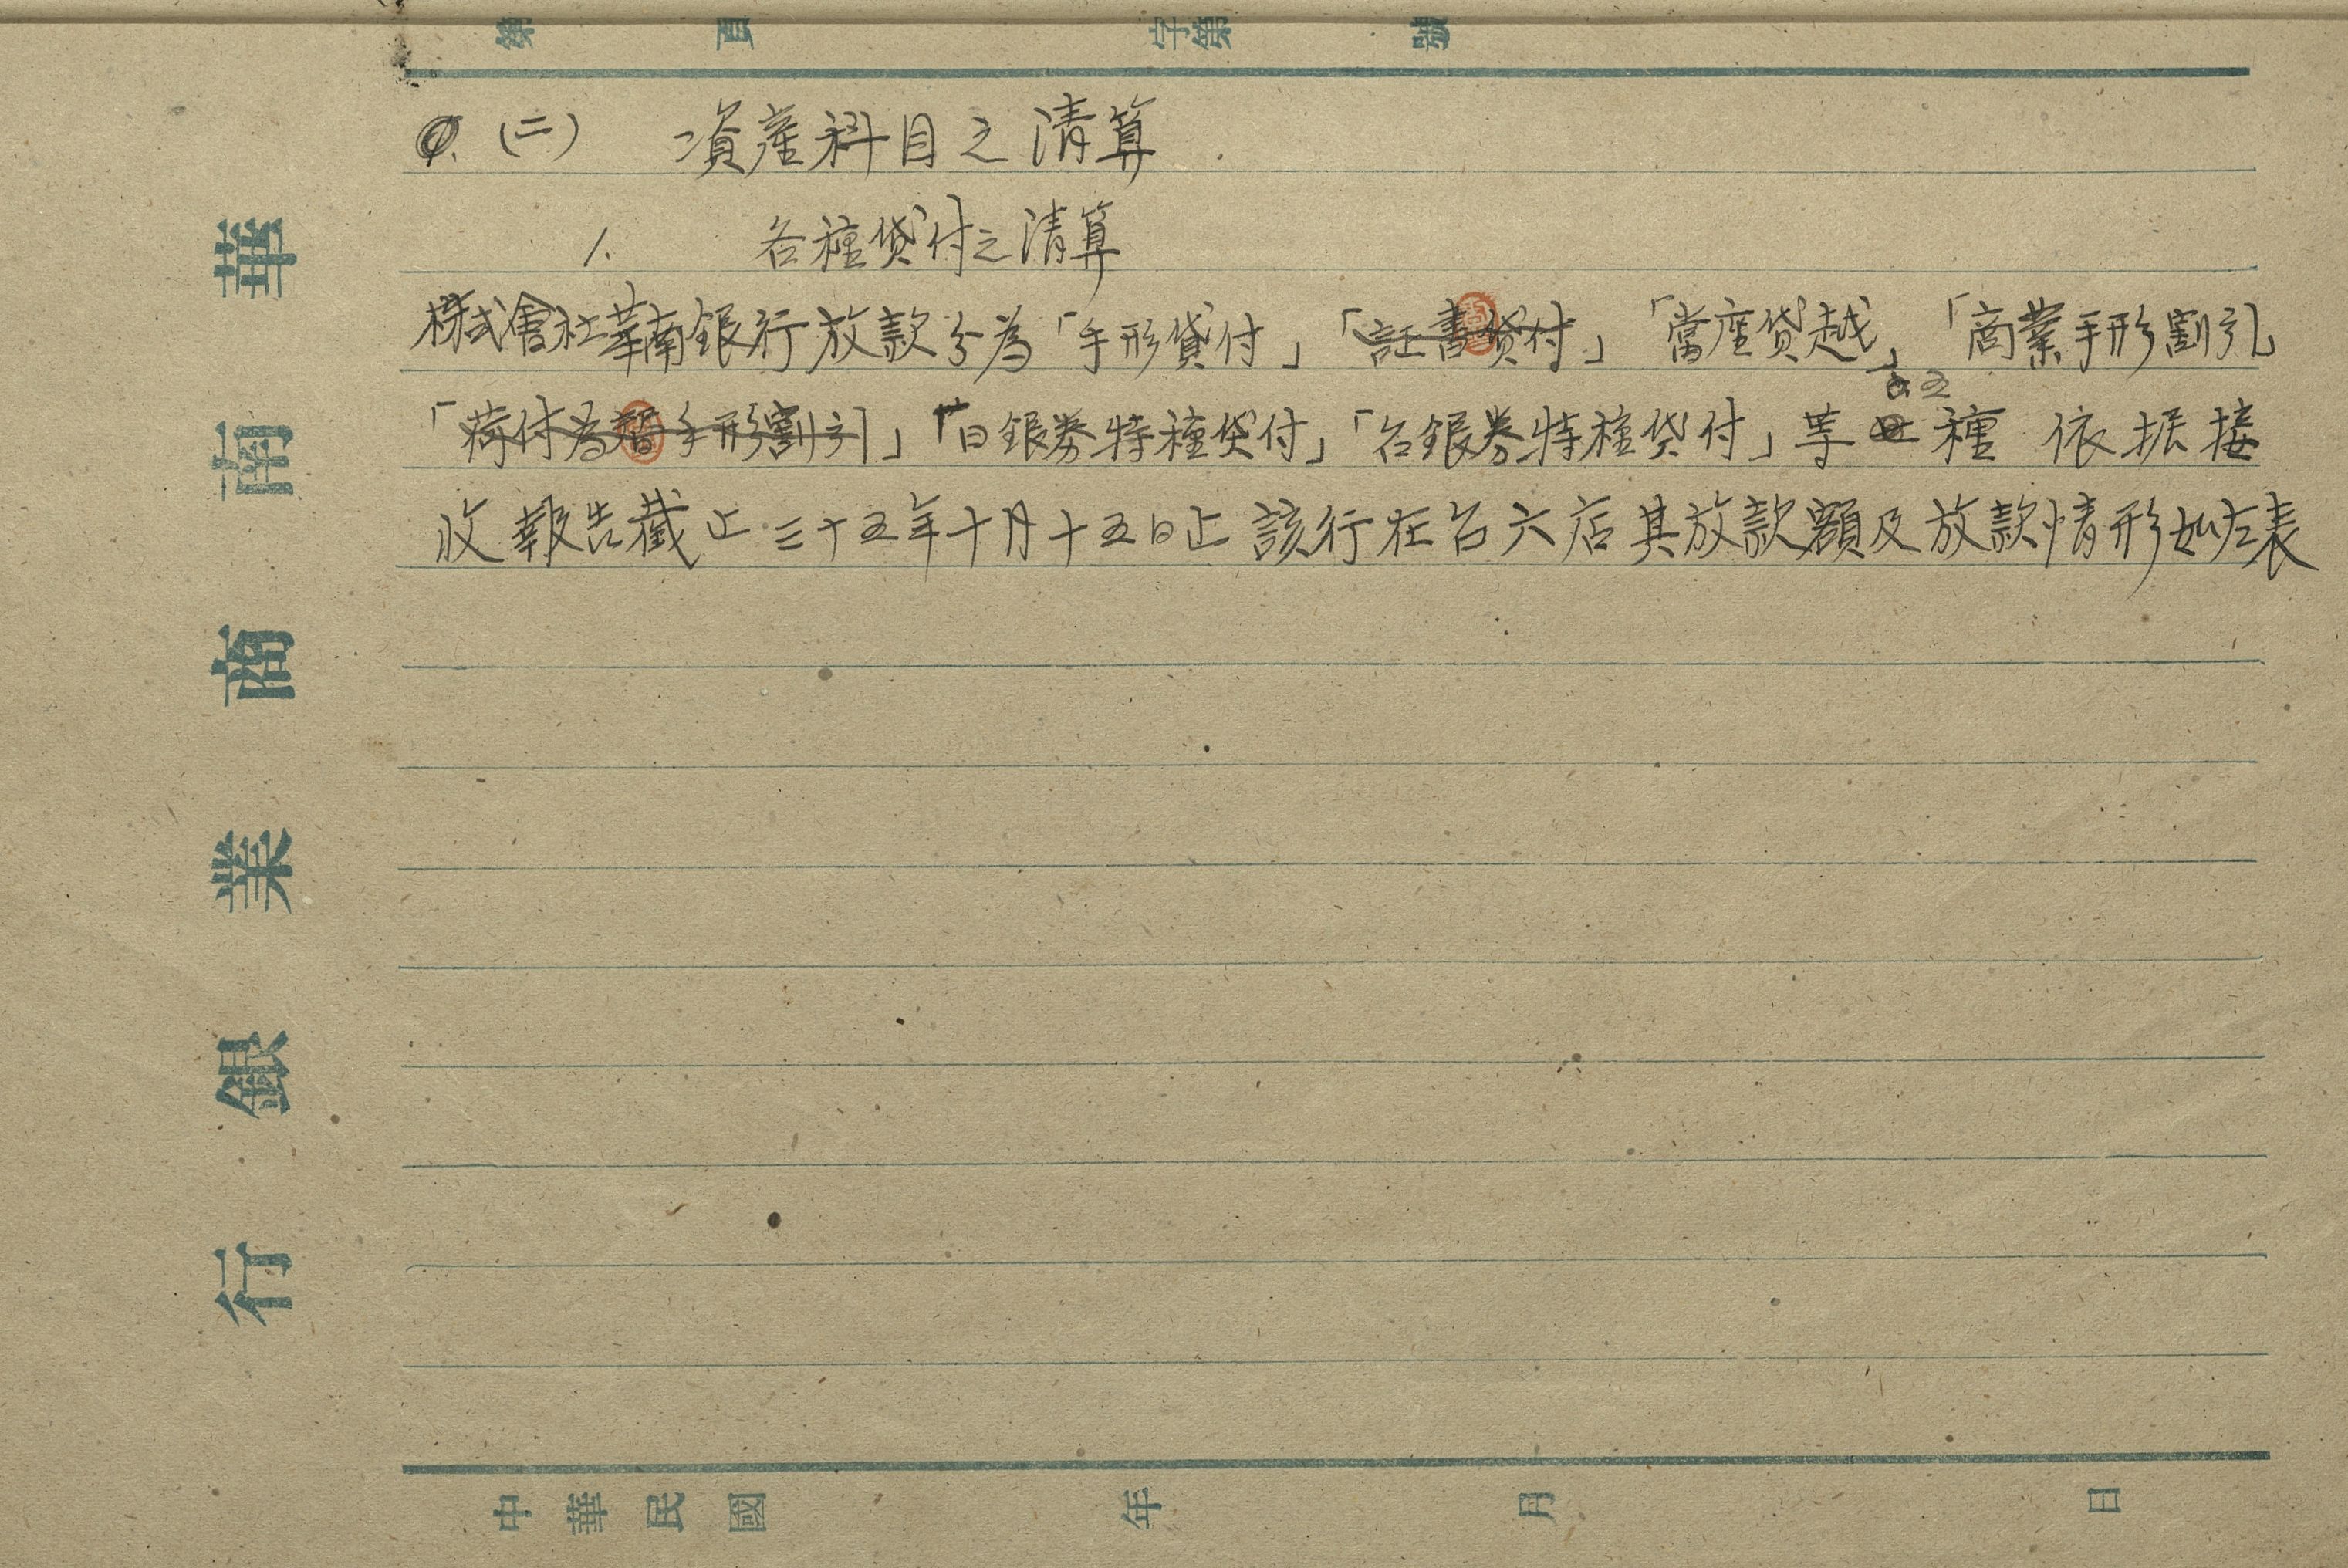 第 頁 字第 號
(二) 資產科目之清算
1. 各種貸付之清算
株式會社華南銀行放款分為「手形貸付」「証書貸付」「當座貸越」「商業手形割引」
「荷付為替手形割引」「日銀券特種貸付」「台銀券特種貸付」等五種 依据接
收報告截止三十五年十月十五日止該行在台六店其放款額及放款情形如左表
華南商業銀行
中華民國 年 月 日